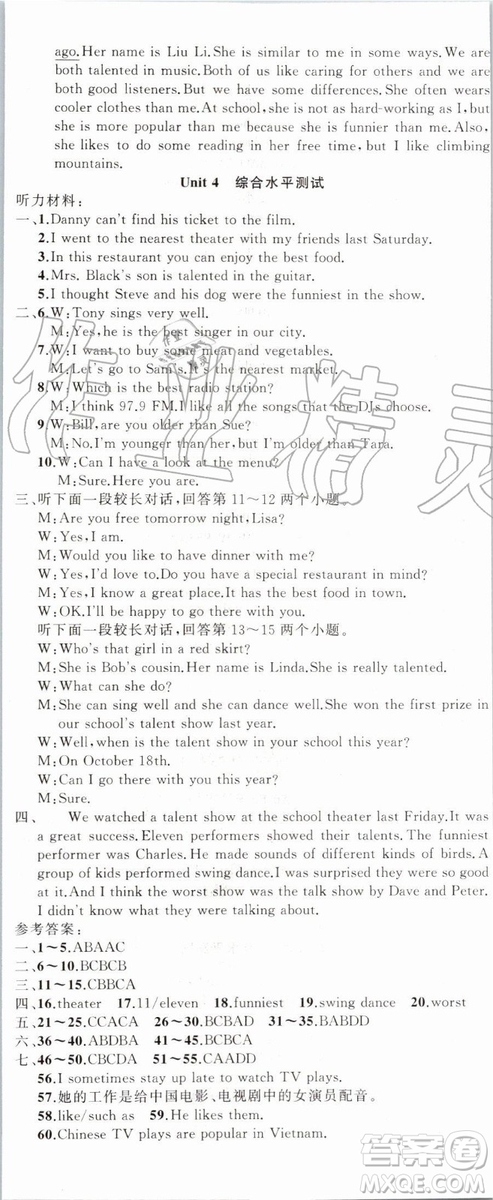 ago.Her name is Liu Li.She is similar to me in some ways.We are
both talented in music.Both of us like caring for others and we are
both good listeners.But we have some differences.She often wears
cooler clothes than me.At school,she is not as hard-working as I,but
she is more popular than me because she is funnier than me.Also,
she likes to do some reading in her free time,but I like climbing
mountains.
Unit 4 综合水平测试
听力材料：
一、1.Danny can't find his ticket to the film.
2.I went to the nearest theater with my friends last Saturday.
3.In this restaurant you can enjoy the best food.
4.Mrs. Black's son is talented in the guitar.
5.I thought Steve and his dog were the funniest in the show.
二、6.W:Tony sings very well.
M:Yes,he is the best singer in our city.
7.W:I want to buy some meat and vegetables.
M:Let's go to Sam's.It's the nearest market.
8.W:Which is the best radio station?
M:I think 97.9 FM.I like all the songs that the DJs choose.
9.W:Bill,are you older than Sue?
M:No.I'm younger than her,but I'm older than Tara.
10.W:Can I have a look at the menu?
M:Sure.Here you are.
三、听下面一段较长对话，回答第11～12两个小题。
M:Are you free tomorrow night,Lisa?
W:Yes,I am.
M:Would you like to have dinner with me?
W:Yes,I'd love to.Do you have a special restaurant in mind?
M:Yes,I know a great place.It has the best food in town.
W:OK.I'll be happy to go there with you.
听下面一段较长对话，回答第13～15两个小题。
W:Who's that girl in a red skirt?
M:She is Bob's cousin.Her name is Linda.She is really talented.
W:What can she do?
M:She can sing well and she can dance well.She won the first prize in
our school's talent show last year.
W:Well,when is the talent show in your school this year?
M:On October 18th.
W:Can I go there with you this year?
M:Sure.
四、We watched a talent show at the school theater last Friday.It was
a great success.Eleven performers showed their talents.The funniest
performer was Charles.He made sounds of different kinds of birds.A
group of kids performed swing dance.I was surprised they were so
good at it.And I think the worst show was the talk show by Dave and Peter.
I didn't know what they were talking about.
参考答案：
一、1～5.ABAAC
二、6～10.BCBCB
三、11～15.CBBCA
四、16.theater 17.11/eleven 18.funniest 19.swing dance 20.worst
五、21～25.CCACA 26～30.BCBAD 31～35.BABDD
六、36～40.ABDBA 41～45.BCBCB
七、46～50.CBCDA 51～55.CAADD
56.I sometimes stay up late to watch TV plays.
57.她的工作是给中国电影、电视剧中的女演员配音。
58.like/such as 59.He likes them.
60.Chinese TV plays are popular in Vietnam.
作业精灵
答案圈
MXQE.COM